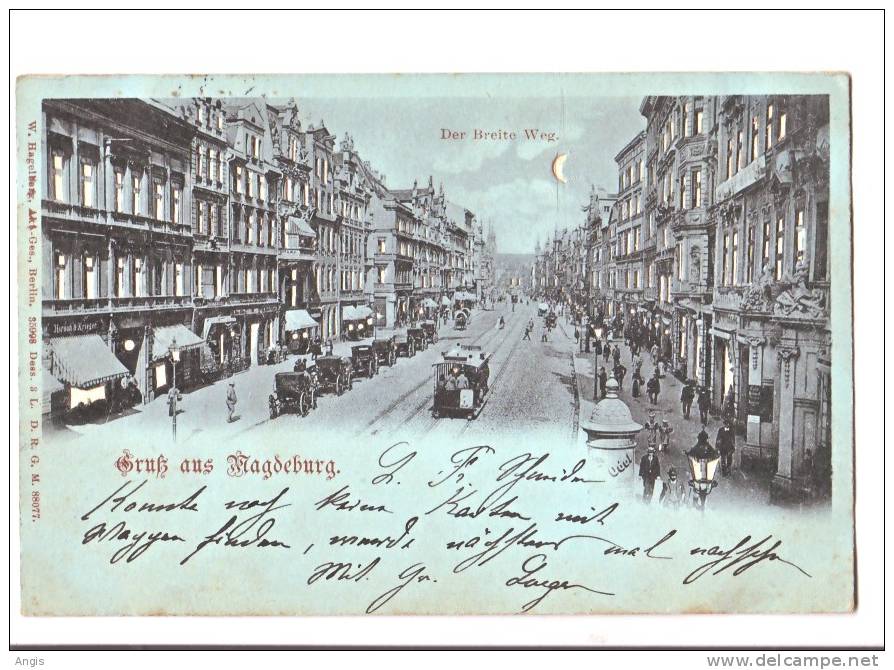 Der Breite Weg.
W. Hagelberg, Akt-Ges., Berlin. 35998 Dess. 3 L. D. R. G. M. 88077.
Hirsch & Krieger
Gruß aus Magdeburg.
L. Fr. Schneider
Konnte noch keine Karten mit
Wappen finden, werde nächstens mal nachsehn
Mit Gr.
Angis
www.delcampe.net